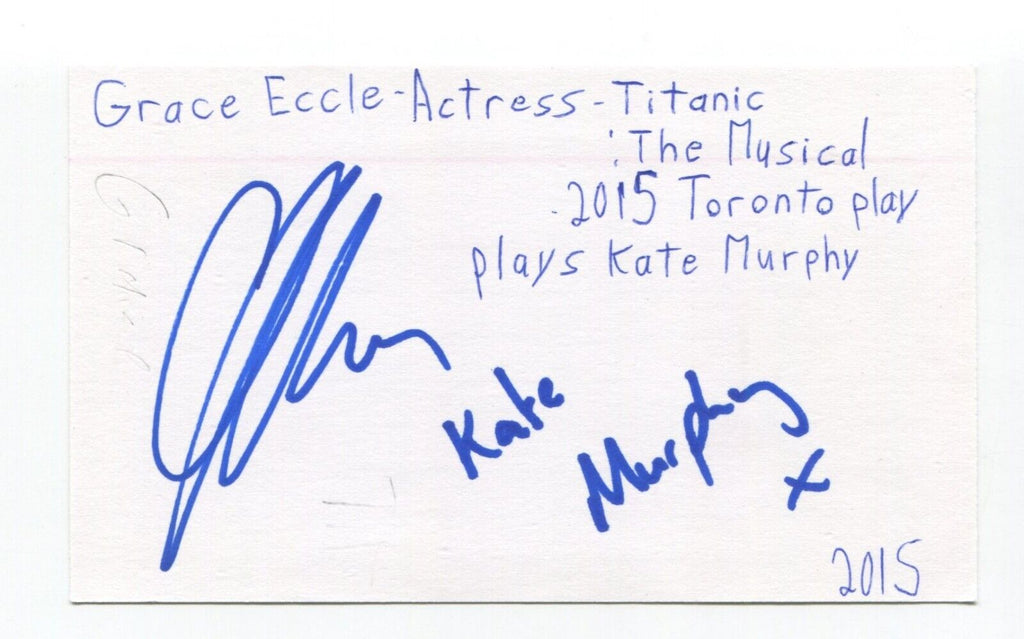 Grace Eccle - Actress - Titanic
: The Musical
2015 Toronto play
plays Kate Murphy
Kate
Murphy
x
2015